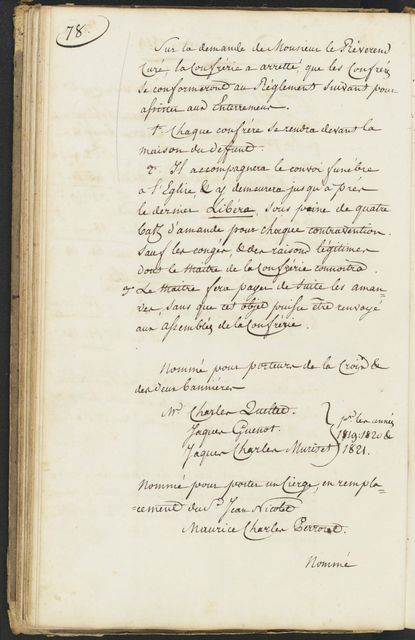 78.
Sur la demande de Monsieur le Réverend
Curé, la Confrérie a arretté, que les Confréres
se conformeront au Réglement suivant pour
assister aux Enterremens.
1.° Chaque confrére se rendra devant la
maison du défunt.
2.° Il accompagnera le convoi funébre
à l'Eglise, & y demeurera jusqu'à près
le dernier Libéra, sous peine de quatre
batz d'amande pour chaque contravention.
Sauf les congés, & des raisons légitimes
dont le Maitre de la Confrérie connoitra.
3° Le Maitre fera payer de suite les aman-
des, sans que cet objet puisse être renvoyé
aux assemblées de la Confrérie.
Nommé pour porteurs de la Croix &
des deux bannières
Mrs Charles Quellet.
Jaques Guenot.
Jaques Charles Muriset
pr les années
1819. 1820 &
1821.
Nommé pour porter un Cierge, en rempla-
-cement du Sr Jean Nicolet
Maurice Charles Perroset.
Nommé